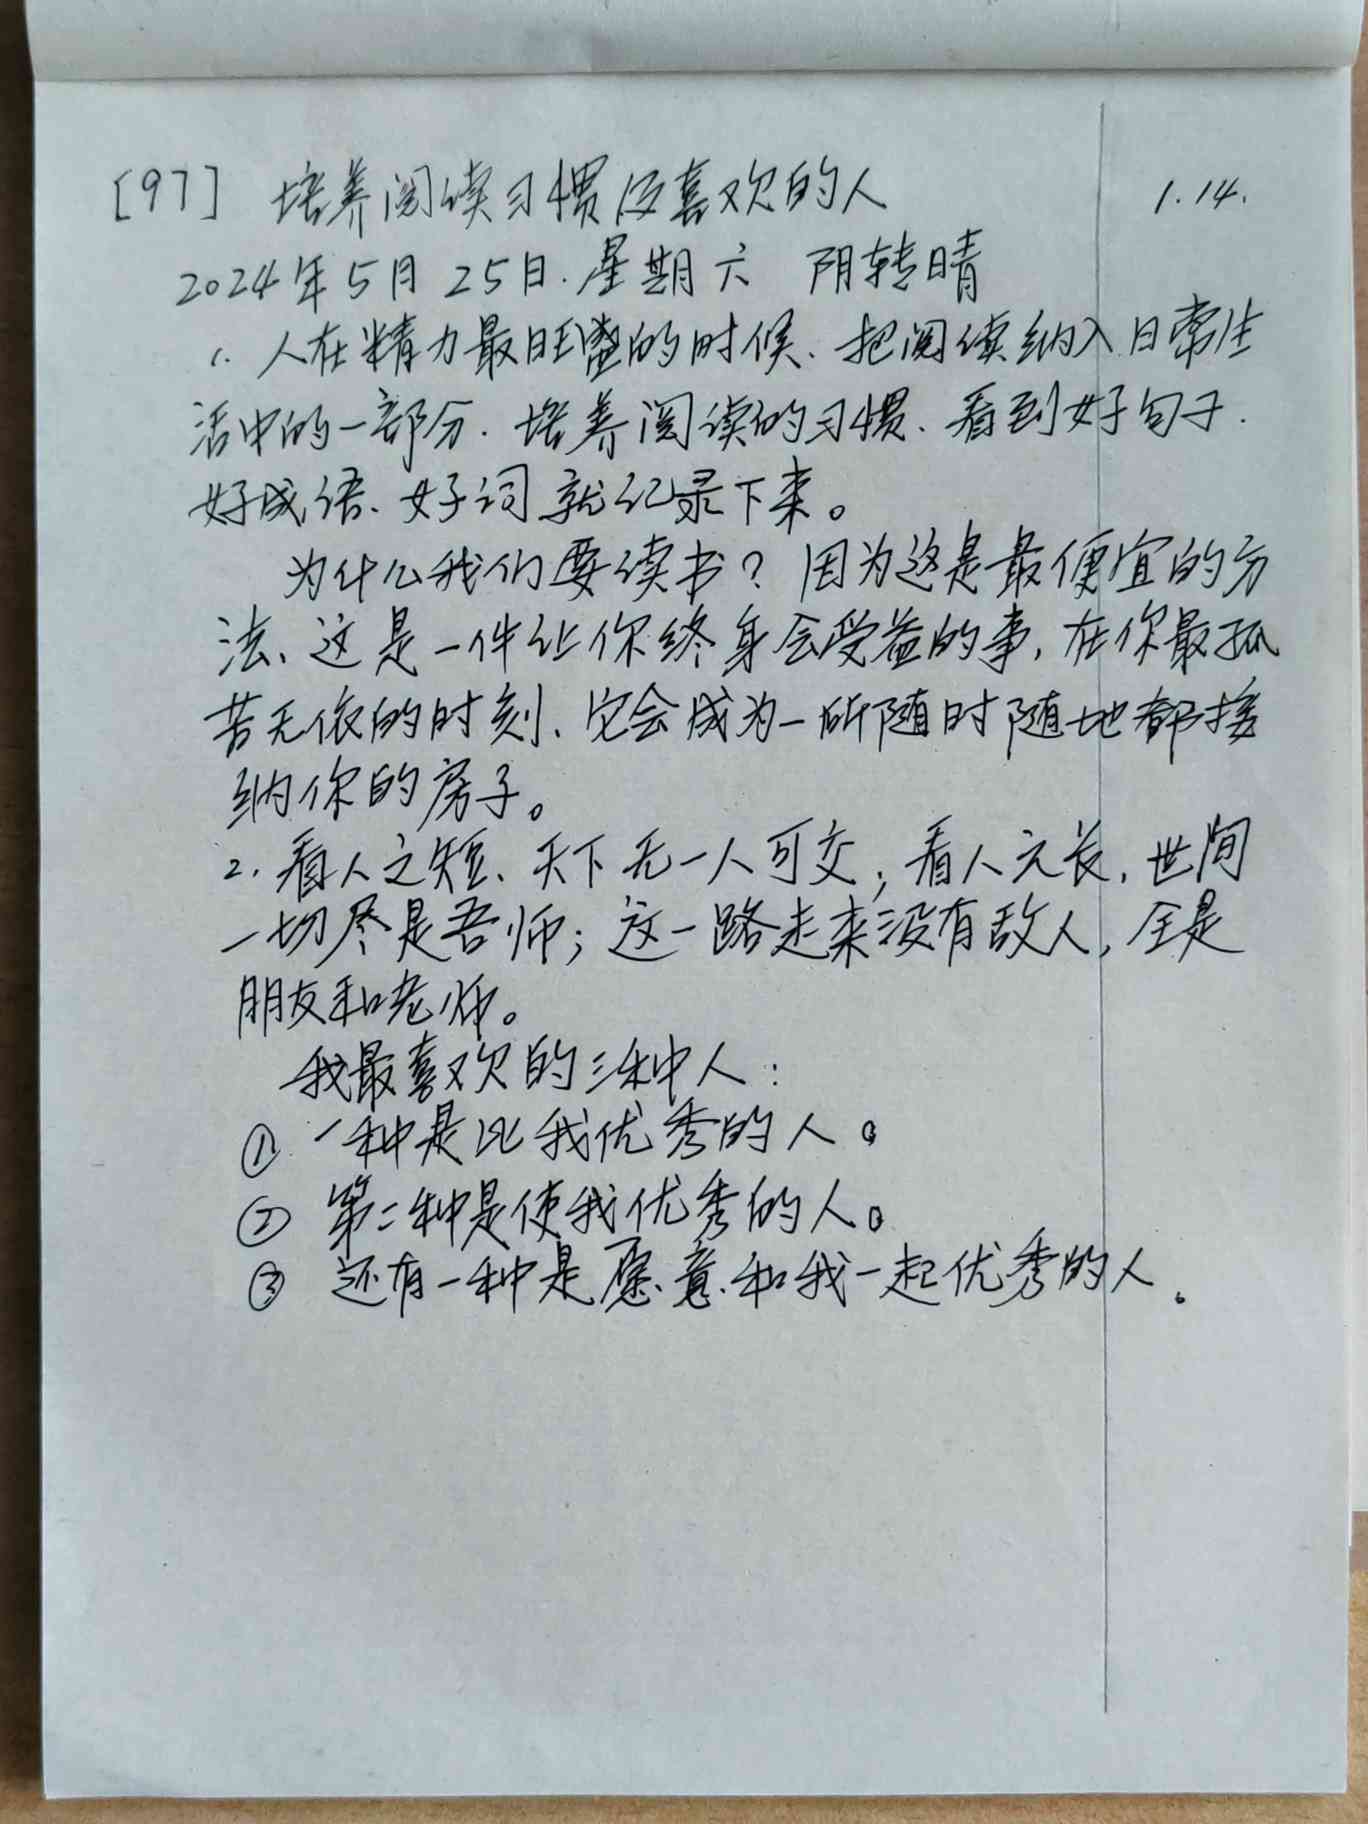 [97] 培养阅读习惯及喜欢的人 1.14.
2024年5月25日.星期六 阴转晴
1. 人在精力最旺盛的时候、把阅读纳入日常生
活中的一部分.培养阅读的习惯、看到好句子.
好成语、好词就记录下来。
为什么我们要读书？因为这是最便宜的方
法、这是一件让你终身会受益的事，在你最孤
苦无依的时刻、它会成为一所随时随地都接
纳你的房子。
2.看人之短、天下无一人可交；看人之长，世间
一切尽是吾师；这一路走来没有敌人，全是
朋友和老师。
我最喜欢的三种人：
① 一种是比我优秀的人。
② 第二种是使我优秀的人。
③ 还有一种是愿意和我一起优秀的人。